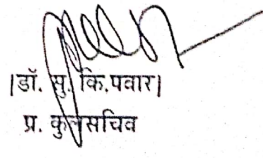 |डॉ. सु. कि.पवार|
प्र. कुलसचिव